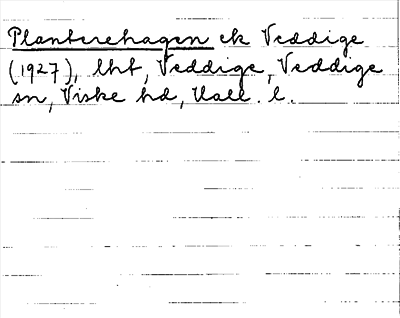 Planterehagen ek Veddige
(1927), lht, Veddige, Veddige
sn, Viske hd, Hall. l.